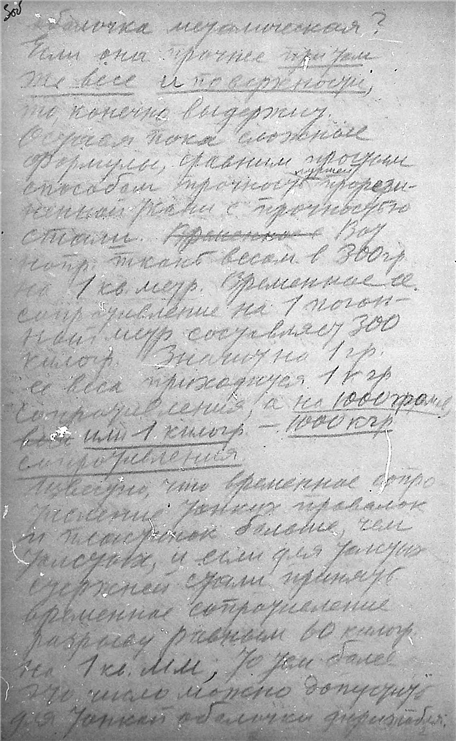 оболочка металическая?
Если она прочнее при том
же весе и поверхности,
то конечно выдержит.
Оставляя пока сложные
формулы, сравним простым
способом прочность лучшей прорези-
ненной ткани с прочностью
стали. Вот
напр. ткань весом в 300 гр.
на 1 кв. метр. Временное ее
сопротивление на 1 погон-
ный метр составляет 300
килогр. Значит на 1 гр.
ее веса приходится 1 кгр
сопротивления, а на 1000 грамм,
веса или 1 килогр. – 1000 кгр
сопротивления.
Известно, что временное сопро-
тивление тонких проволок
и пластинок больше, чем
толстых, и если для толстых
стержней стали принять
временное сопротивление
разрыву равным 60 килогр.
на 1 кв. мм, то тем более
это число можно допустить
для тонкой оболочки дирижабля.